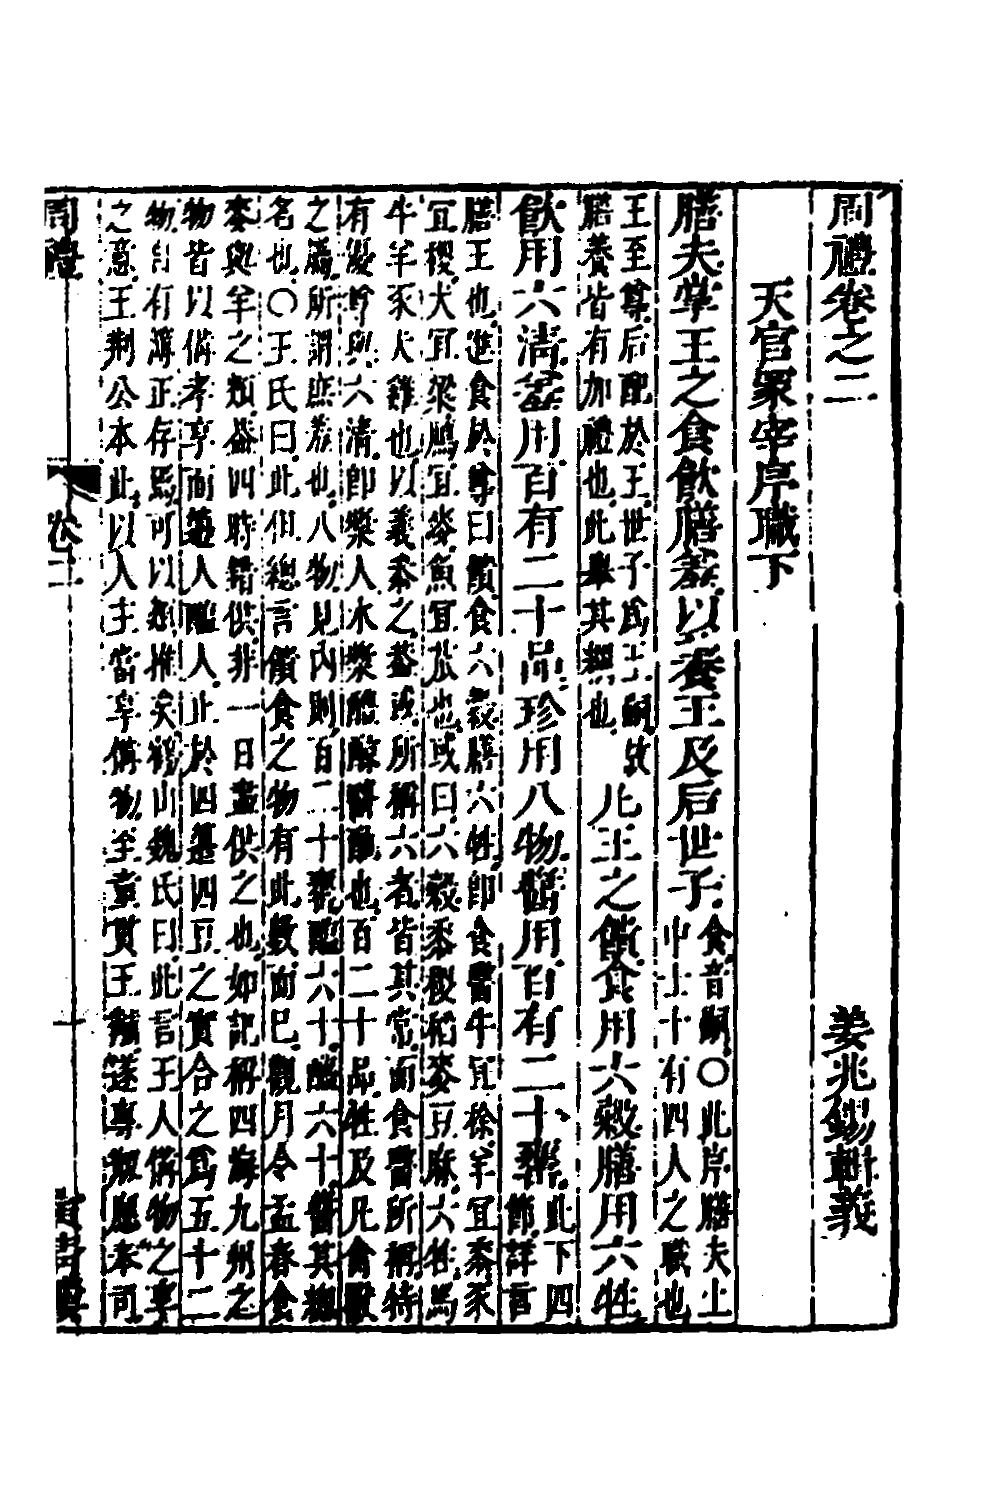 周禮卷之二 姜兆錫輯義
天官冢宰序職下
膳夫掌王之食飲膳羞以養王及后世子
食音嗣○此序膳夫上
中士十有四人之職也
王至尊后配於王世子爲王嗣故
膳養皆有加禮也此舉其槩也
凡王之饋食用六穀膳用六牲
飲用六清羞用百有二十品珍用八物醬用百有二十罋
此下四
節詳言
膳王也進食於尊曰饋食六穀膳六牲卽食醫牛宜稌羊宜黍豕
宜稷犬宜粱鴈宜麥魚宜苽也或曰六穀黍稷稻麥豆麻六牲馬
牛羊豕犬雞也以義黍之蓋或所稱六者皆其常而食醫所稱特
有優六清卽漿人水漿醴醇醫酏也百二十品牲及凡禽獸
之屬所謂庶羞也八物見内則百二十罋醢六十醯六十醬其總
名也○王氏曰此但總言饋食之物有此數而已觀月令孟春食
麥與羊之類蓋四時錯供非一日盡供之也如記稱四海九州之
物皆以備孝享而籩人醢人止於四籩四豆之實合之爲五十二
物自有薄正存焉可以類推矣鶴山魏氏曰此言王人備物之享
之意王荆公本此以人主當享備物至童貫王黼遂專應奉司
周禮 卷二 一